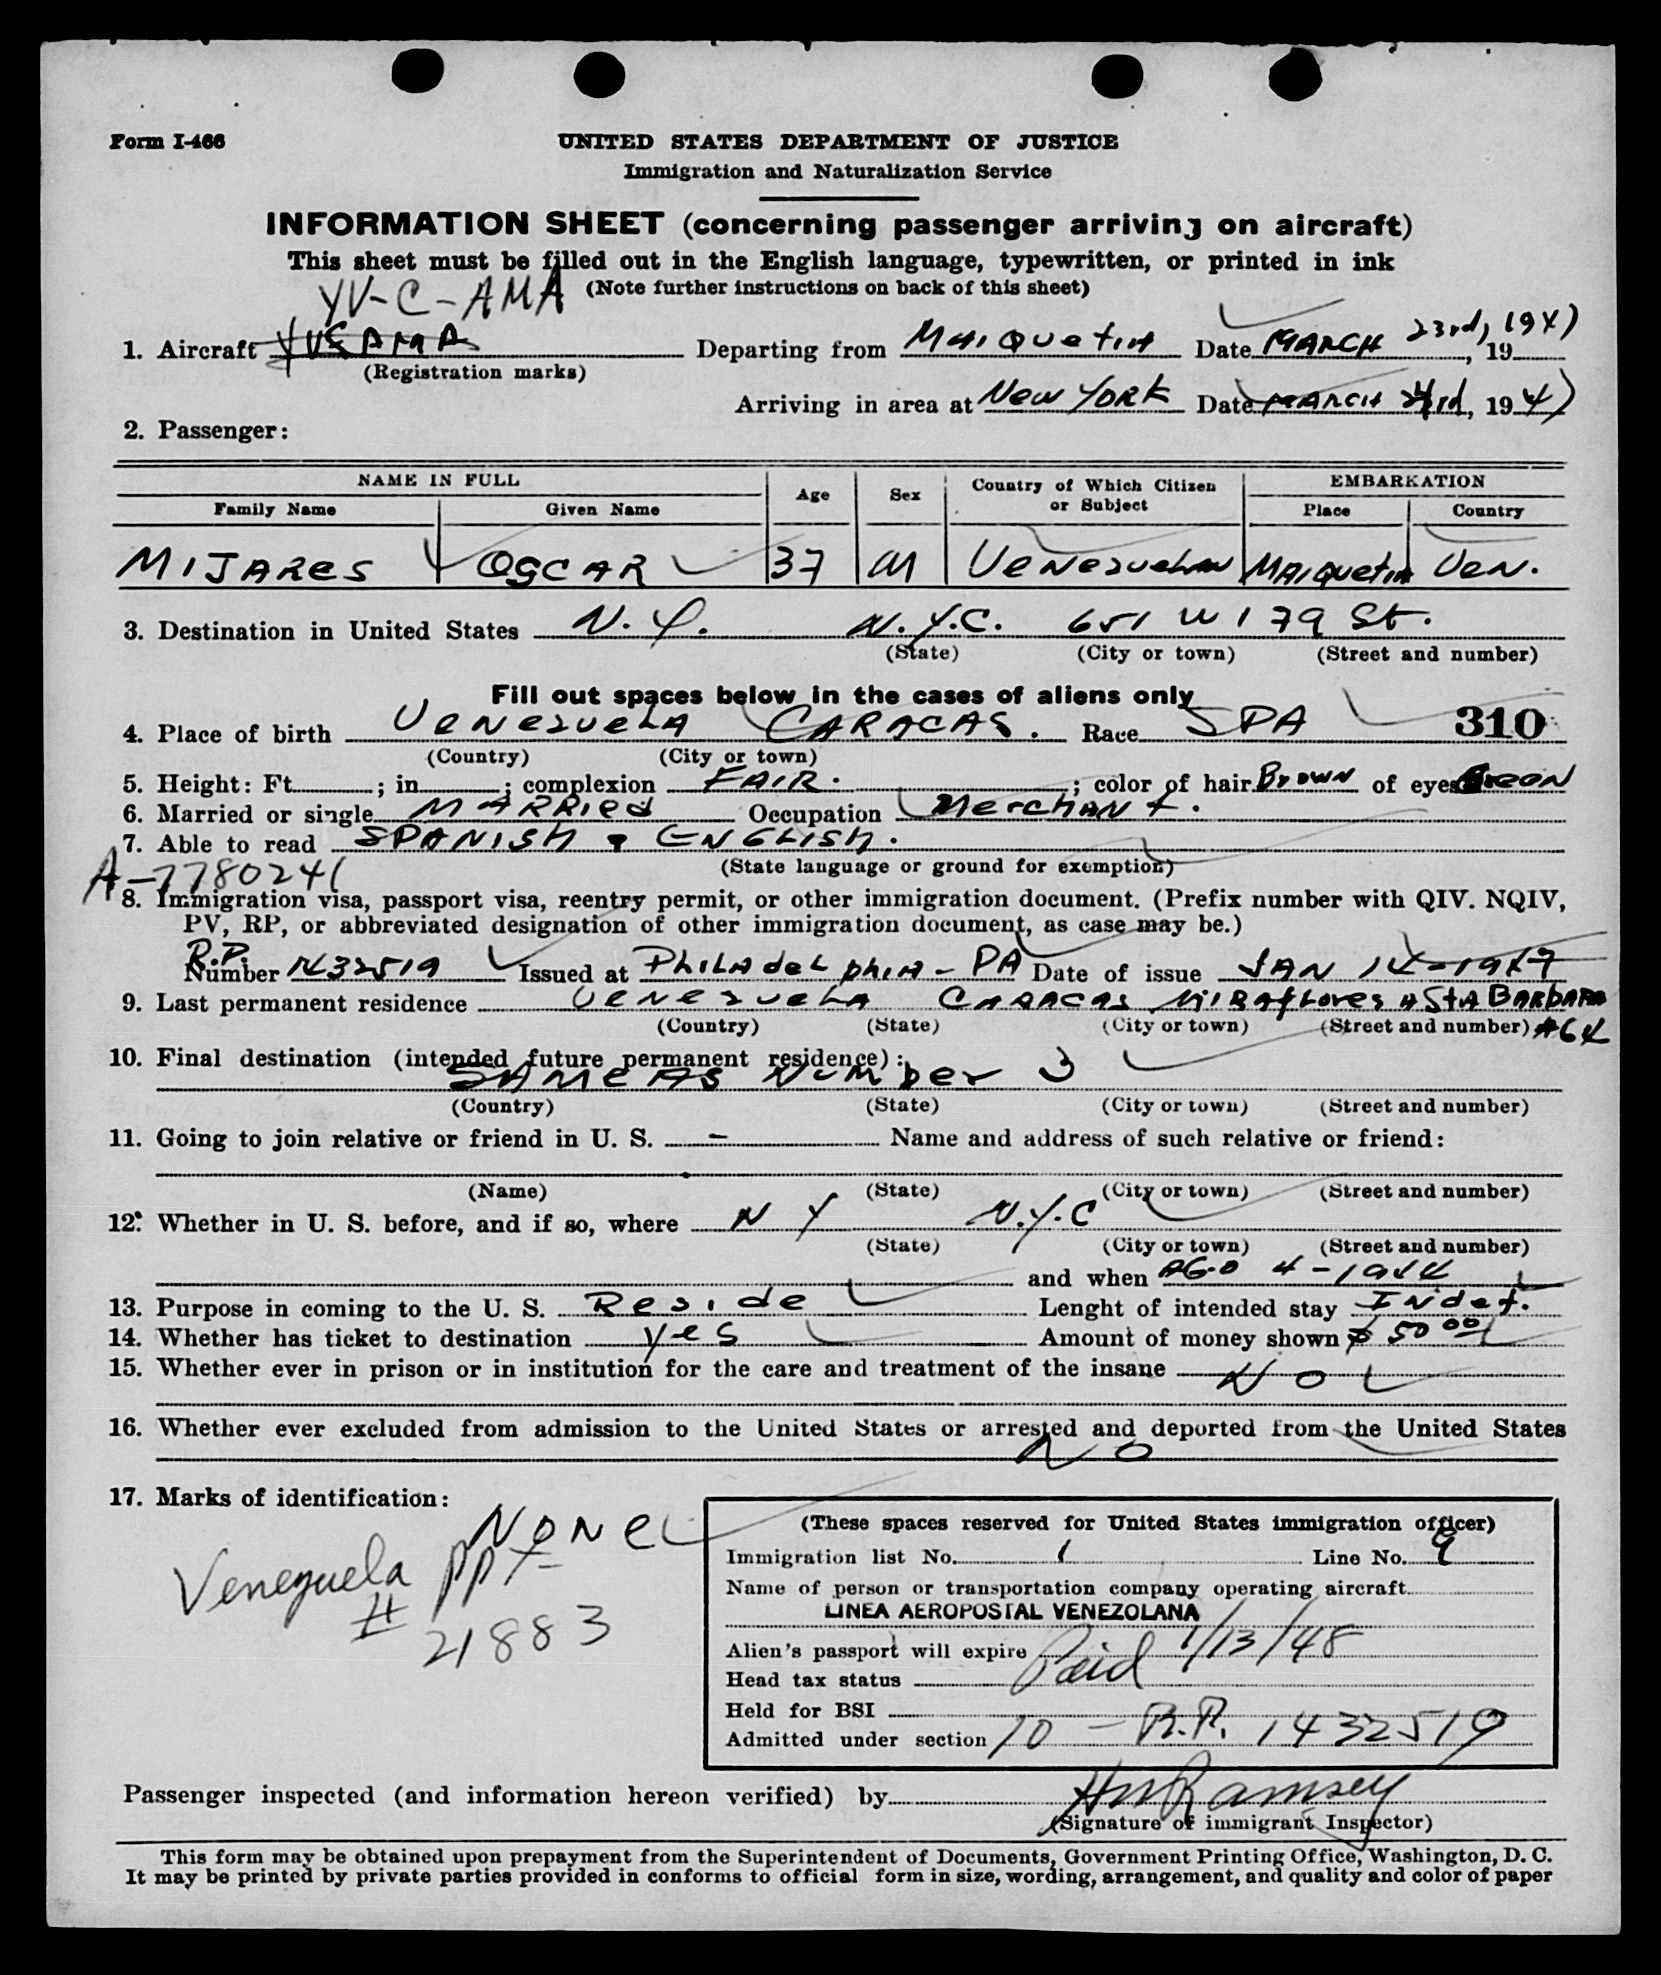 Form I-466
UNITED STATES DEPARTMENT OF JUSTICE
Immigration and Naturalization Service
INFORMATION SHEET (concerning passenger arriving on aircraft)
This sheet must be filled out in the English language, typewritten, or printed in ink
YV-C-AMA (Note further instructions on back of this sheet)
1. Aircraft YVCAMA Departing from MAIQUETIA Date MARCH 23rd, 1947, 19
(Registration marks)
Arriving in area at New YORK Date MARCH rd, 1947
2. Passenger:
NAME IN FULL Age Sex Country of Which Citizen or Subject EMBARKATION
Family Name Given Name Place Country
MIJARES OSCAR 37 M VENEZUELAN MAIQUETIA VEN.
3. Destination in United States N.Y. N.Y.C. 651 W 179 St.
(State) (City or town) (Street and number)
Fill out spaces below in the cases of aliens only
4. Place of birth VENEZUELA CARACAS. Race SPA 310
(Country) (City or town)
5. Height: Ft. ; in. ; complexion FAIR. ; color of hair Brown of eyes Green
6. Married or single MARRIED Occupation Merchant.
7. Able to read SPANISH & ENGLISH.
(State language or ground for exemption)
A-7780241
8. Immigration visa, passport visa, reentry permit, or other immigration document. (Prefix number with QIV. NQIV,
PV, RP, or abbreviated designation of other immigration document, as case may be.)
R.P.
Number 1432519 Issued at PHILADELPHIA - PA Date of issue JAN 14-1947
9. Last permanent residence VENEZUELA CARACAS MIRAFLORES A STA BARBARA
(Country) (State) (City or town) (Street and number) #64
10. Final destination (intended future permanent residence):
SAME AS NUMBER 3
(Country) (State) (City or town) (Street and number)
11. Going to join relative or friend in U. S. - Name and address of such relative or friend:
(Name) (State) (City or town) (Street and number)
12. Whether in U. S. before, and if so, where N Y N.Y.C
(State) (City or town) (Street and number)
and when AGO 4-1944
13. Purpose in coming to the U. S. Reside Lenght of intended stay Indef.
14. Whether has ticket to destination yes Amount of money shown $ 50 00
15. Whether ever in prison or in institution for the care and treatment of the insane NO
16. Whether ever excluded from admission to the United States or arrested and deported from the United States
NO
17. Marks of identification:
NONE
Venezuela ppt
# 21883
(These spaces reserved for United States immigration officer)
Immigration list No. 1 Line No. 9
Name of person or transportation company operating aircraft
LINEA AEROPOSTAL VENEZOLANA
Alien's passport will expire 1/13/48
Head tax status Paid
Held for BSI
Admitted under section 10 - R.P. 1432519
Passenger inspected (and information hereon verified) by Ramsey
(Signature of immigrant Inspector)
This form may be obtained upon prepayment from the Superintendent of Documents, Government Printing Office, Washington, D. C.
It may be printed by private parties provided in conforms to official form in size, wording, arrangement, and quality and color of paper